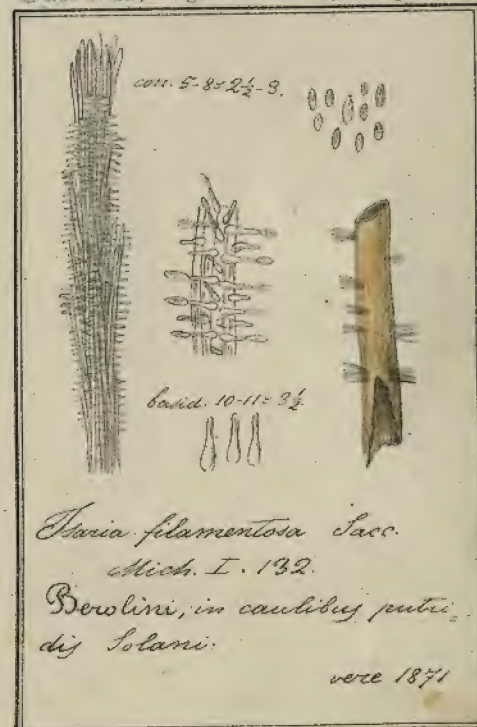 con. 5-8 = 2½-3.
basid. 10-11 = 3½
Isaria filamentosa Sacc.
Mich. I. 132.
Berolini, in caulibus putri=
dis Solani.
vere 1871